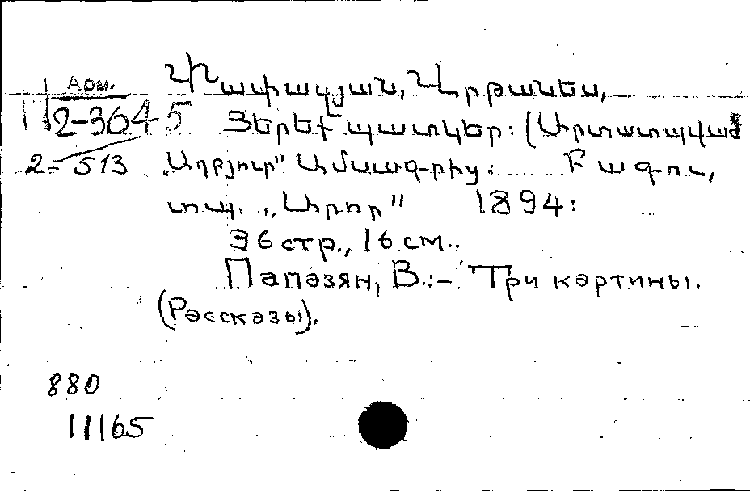 Арм.
2-3645
2-513
Փափազյան, Վրթանես,
Յերեք պատկեր: (Արտատպված
„Աղբյուր" Ամսագրից: Բագու,
տպ. „Արոր" 1894:
36 стр., 16 см..
Папазян, В.:- Три картины.
(Рассказы).
880
11165